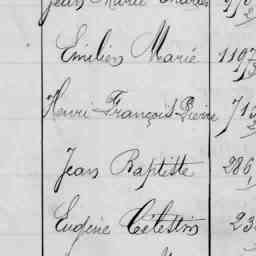 Jean Marie
Emilien Marié 1197
Henri François Pierre 71
Jean Baptiste 286,
Eugène Célestin 23